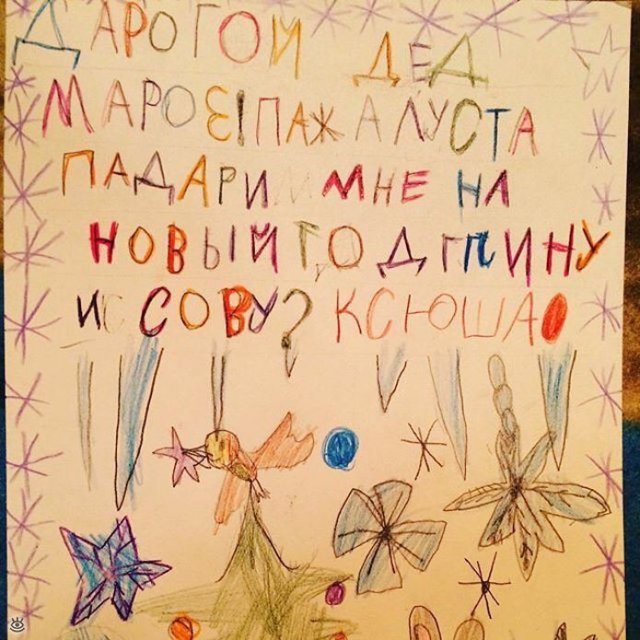 ДАРОГОЙ ДЕД
МАРОЗ! ПАЖАЛУСТА
ПАДАРИ МНЕ НА
НОВЫЙ ГОД ПТИНУ
И СОВУ? КСЮША